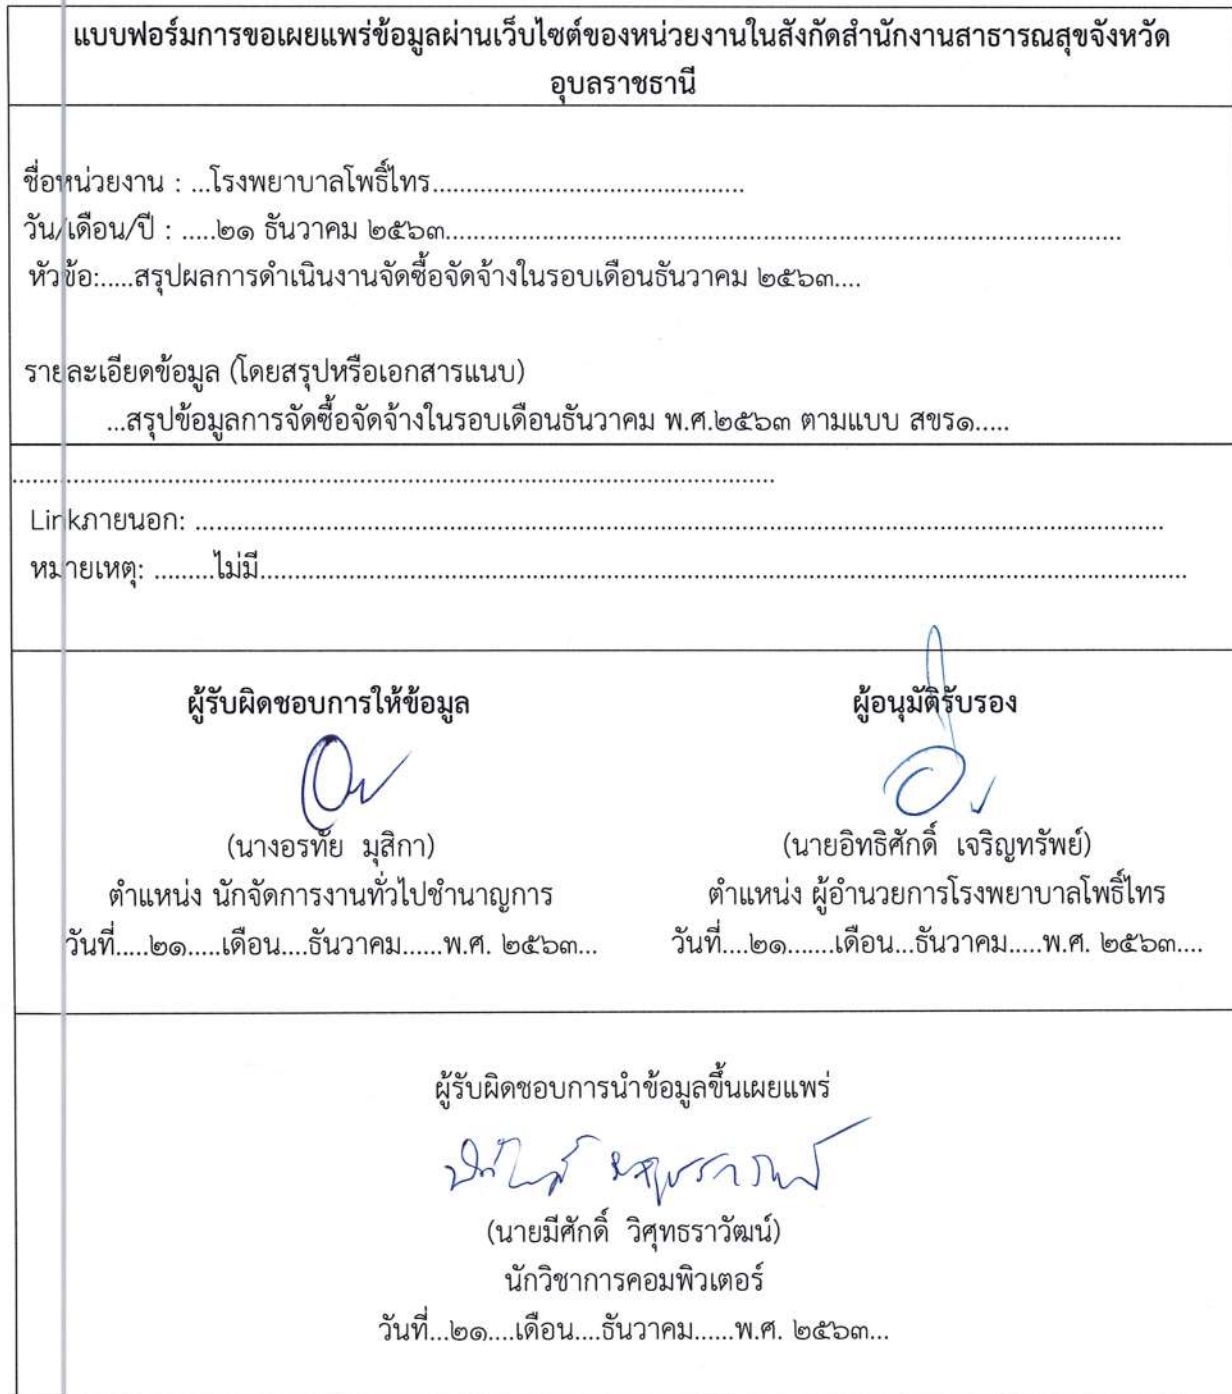 แบบฟอร์มการขอเผยแพร่ข้อมูลผ่านเว็บไซต์ของหน่วยงานในสังกัดสำนักงานสาธารณสุขจังหวัด
อุบลราชธานี
ชื่อหน่วยงาน : ...โรงพยาบาลโพธิ์ไทร..........................................
วัน/เดือน/ปี : .....๒๑ ธันวาคม ๒๕๖๓...........................................................................................
หัวข้อ:.....สรุปผลการดำเนินงานจัดซื้อจัดจ้างในรอบเดือนธันวาคม ๒๕๖๓....
รายละเอียดข้อมูล (โดยสรุปหรือเอกสารแนบ)
...สรุปข้อมูลการจัดซื้อจัดจ้างในรอบเดือนธันวาคม พ.ศ.๒๕๖๓ ตามแบบ สขร๑.....
.......................................................................................................
Linkภายนอก: ..................................................................................................................................
หมายเหตุ: .........ไม่มี.............................................................................................................................
ผู้รับผิดชอบการให้ข้อมูล
(นางอรทัย มุสิกา)
ตำแหน่ง นักจัดการงานทั่วไปชำนาญการ
วันที่.....๒๑.....เดือน....ธันวาคม......พ.ศ. ๒๕๖๓...
ผู้อนุมัติรับรอง
(นายอิทธิศักดิ์ เจริญทรัพย์)
ตำแหน่ง ผู้อำนวยการโรงพยาบาลโพธิ์ไทร
วันที่....๒๑.......เดือน...ธันวาคม.....พ.ศ. ๒๕๖๓....
ผู้รับผิดชอบการนำข้อมูลขึ้นเผยแพร่
(นายมีศักดิ์ วิศุทธราวัฒน์)
นักวิชาการคอมพิวเตอร์
วันที่...๒๑....เดือน....ธันวาคม......พ.ศ. ๒๕๖๓...